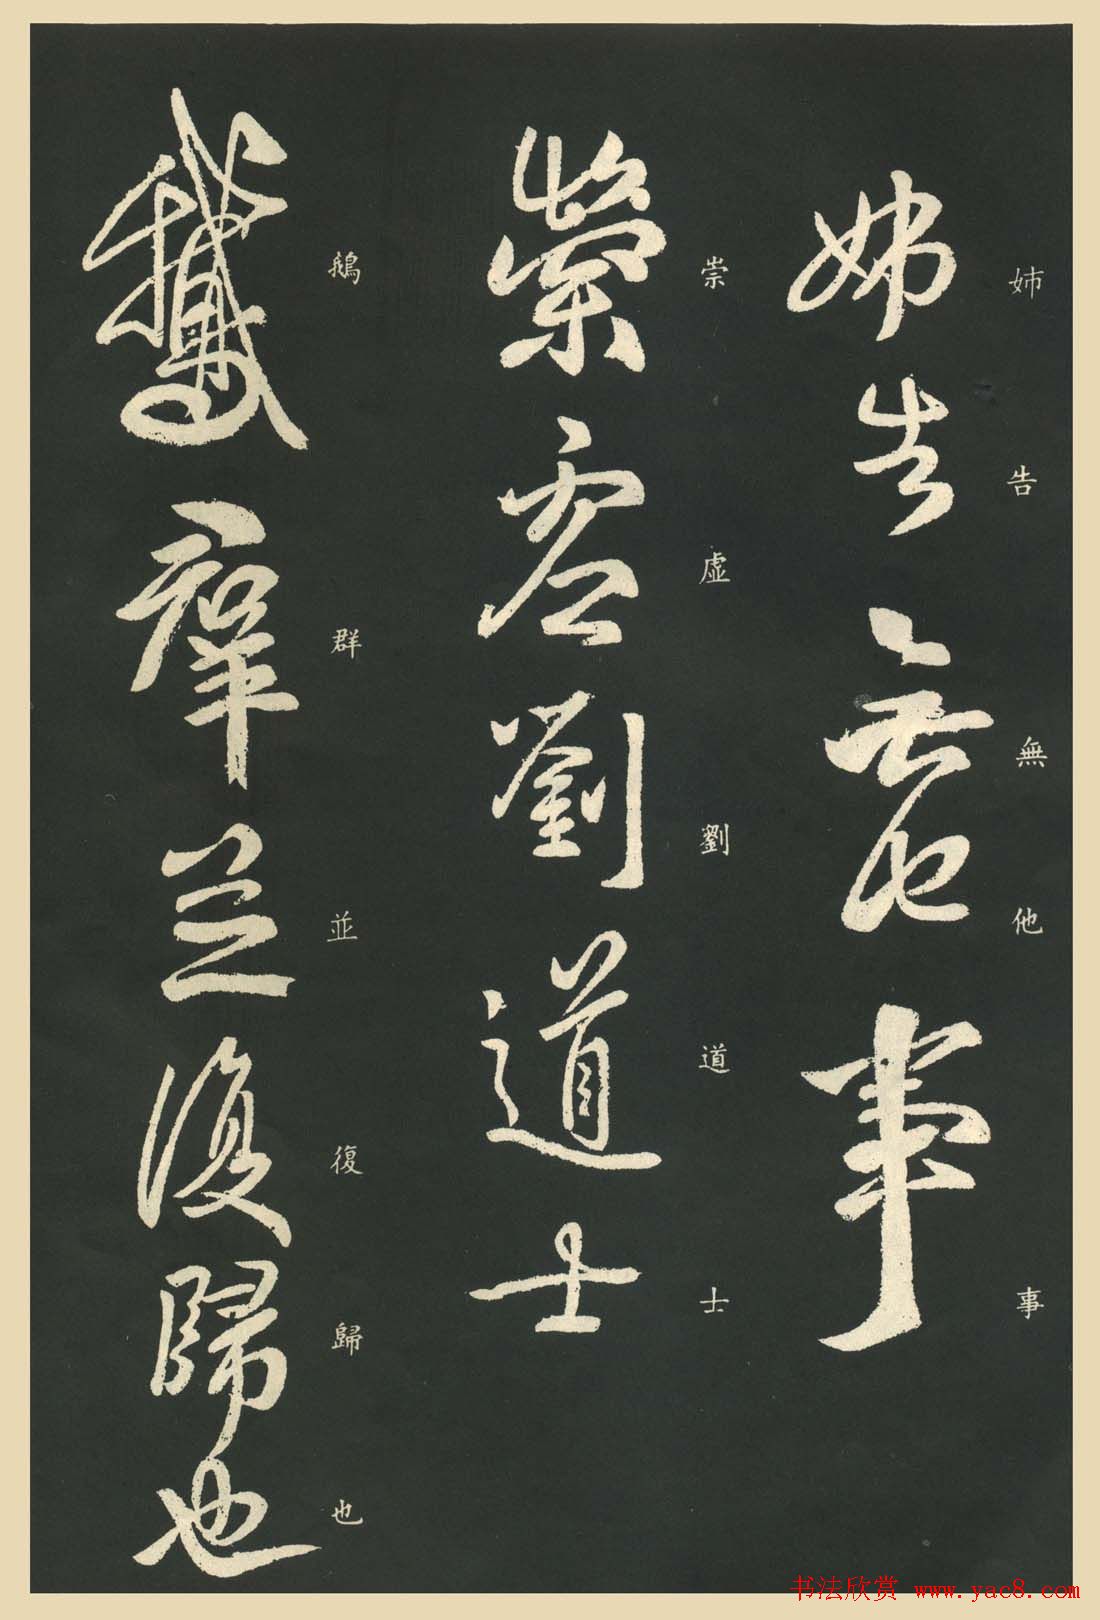 姊告無他事
姊告無他事
崇虛劉道士
崇虛劉道士
鵝群並復歸也
鵝群並復歸也
书法欣赏 www.yac8.com